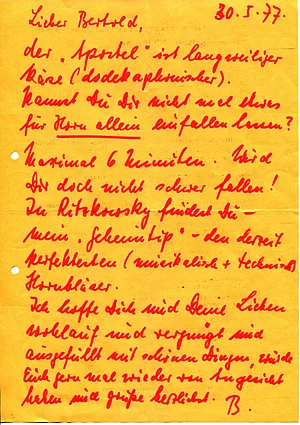 30.5.77.
Lieber Bertold,
der „Apostel" ist langweiliger
Käse (dodekaphonischer).
Kannst Du Dir nicht mal etwas
für Horn allein einfallen lassen?
Maximal 6 Minuten. Wird
Dir doch nicht schwer fallen!
In Ritzkowsky findest Du –
mein „Geheimtip" – den derzeit
perfektesten (musikalisch + technisch)
Hornbläser.
Ich hoffe Dich und Deine Lieben
wohlauf und vergnügt und
ausgefüllt mit schönen Dingen, würde
Euch gern mal wieder von Angesicht
haben und grüße herzlichst. B.